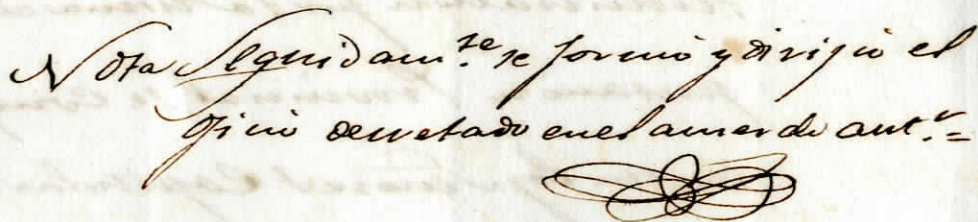 Nota Seguidam.te se formó y dirijió el
oficio decretado en el acuerdo ant.r =